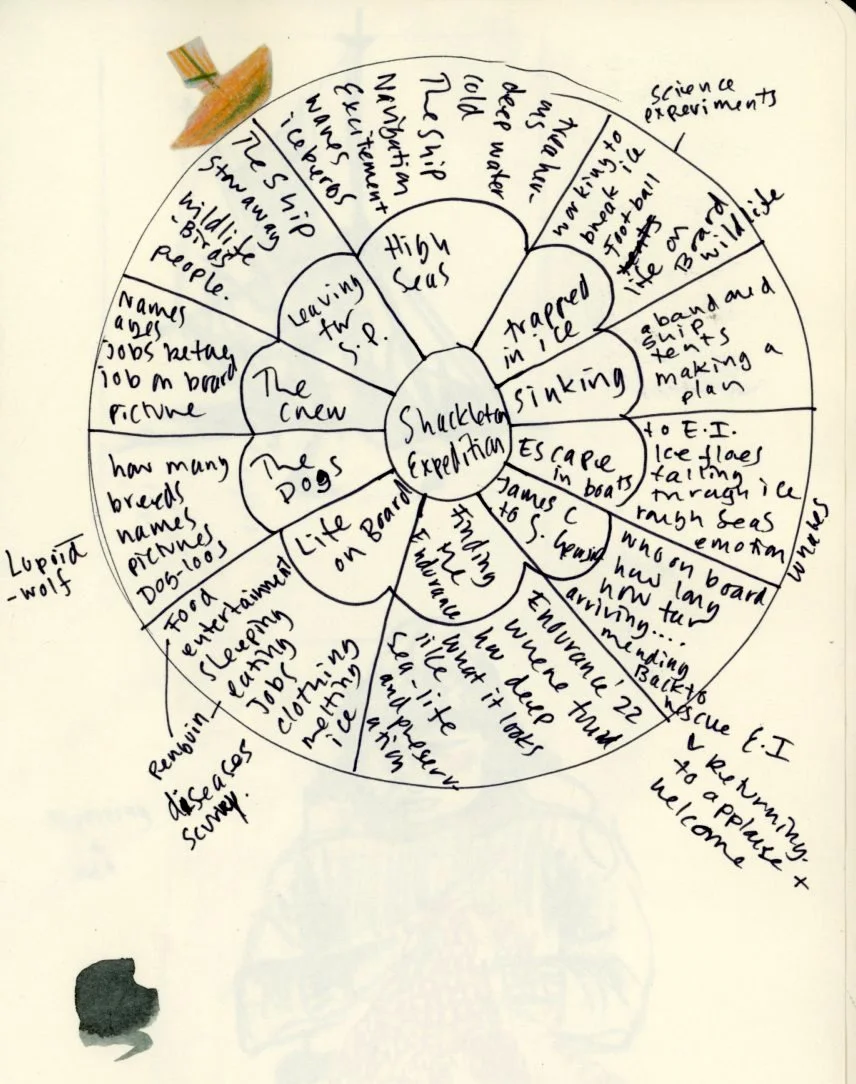 Shackleton
Expedition
High
Seas
iceberos
waves
Excitement
Navigation
The ship
cold
deep water
trapped
in ice
working to
break ice
Football
tents
life on
Board
wildlife
science
experiments
sinking
abandoned
ship
tents
making a
plan
Escape
in boats
to E.I.
Ice floes
falling
through ice
rough seas
emotion
whales
James C
to S.
who on board
how long
how far
arriving....
mending
Back to
rescue E.I
Returning.
to applause x
welcome
Finding
the
Endurance
Endurance '22
where found
how deep
what it looks
like
sea-life
and preserv-
ation
Life
on Board
Food
entertainment
sleeping
eating
Jobs
clothing
melting
ice
Penguin
diseases
scurvy.
The
Dogs
how many
breeds
names
pictures
Dog-loos
Lupoid
-wolf
The
crew
Names
ages
jobs
job on board
picture
Leaving
for
S.P.
The Ship
Stowaway
wildlife
-Birds
people.